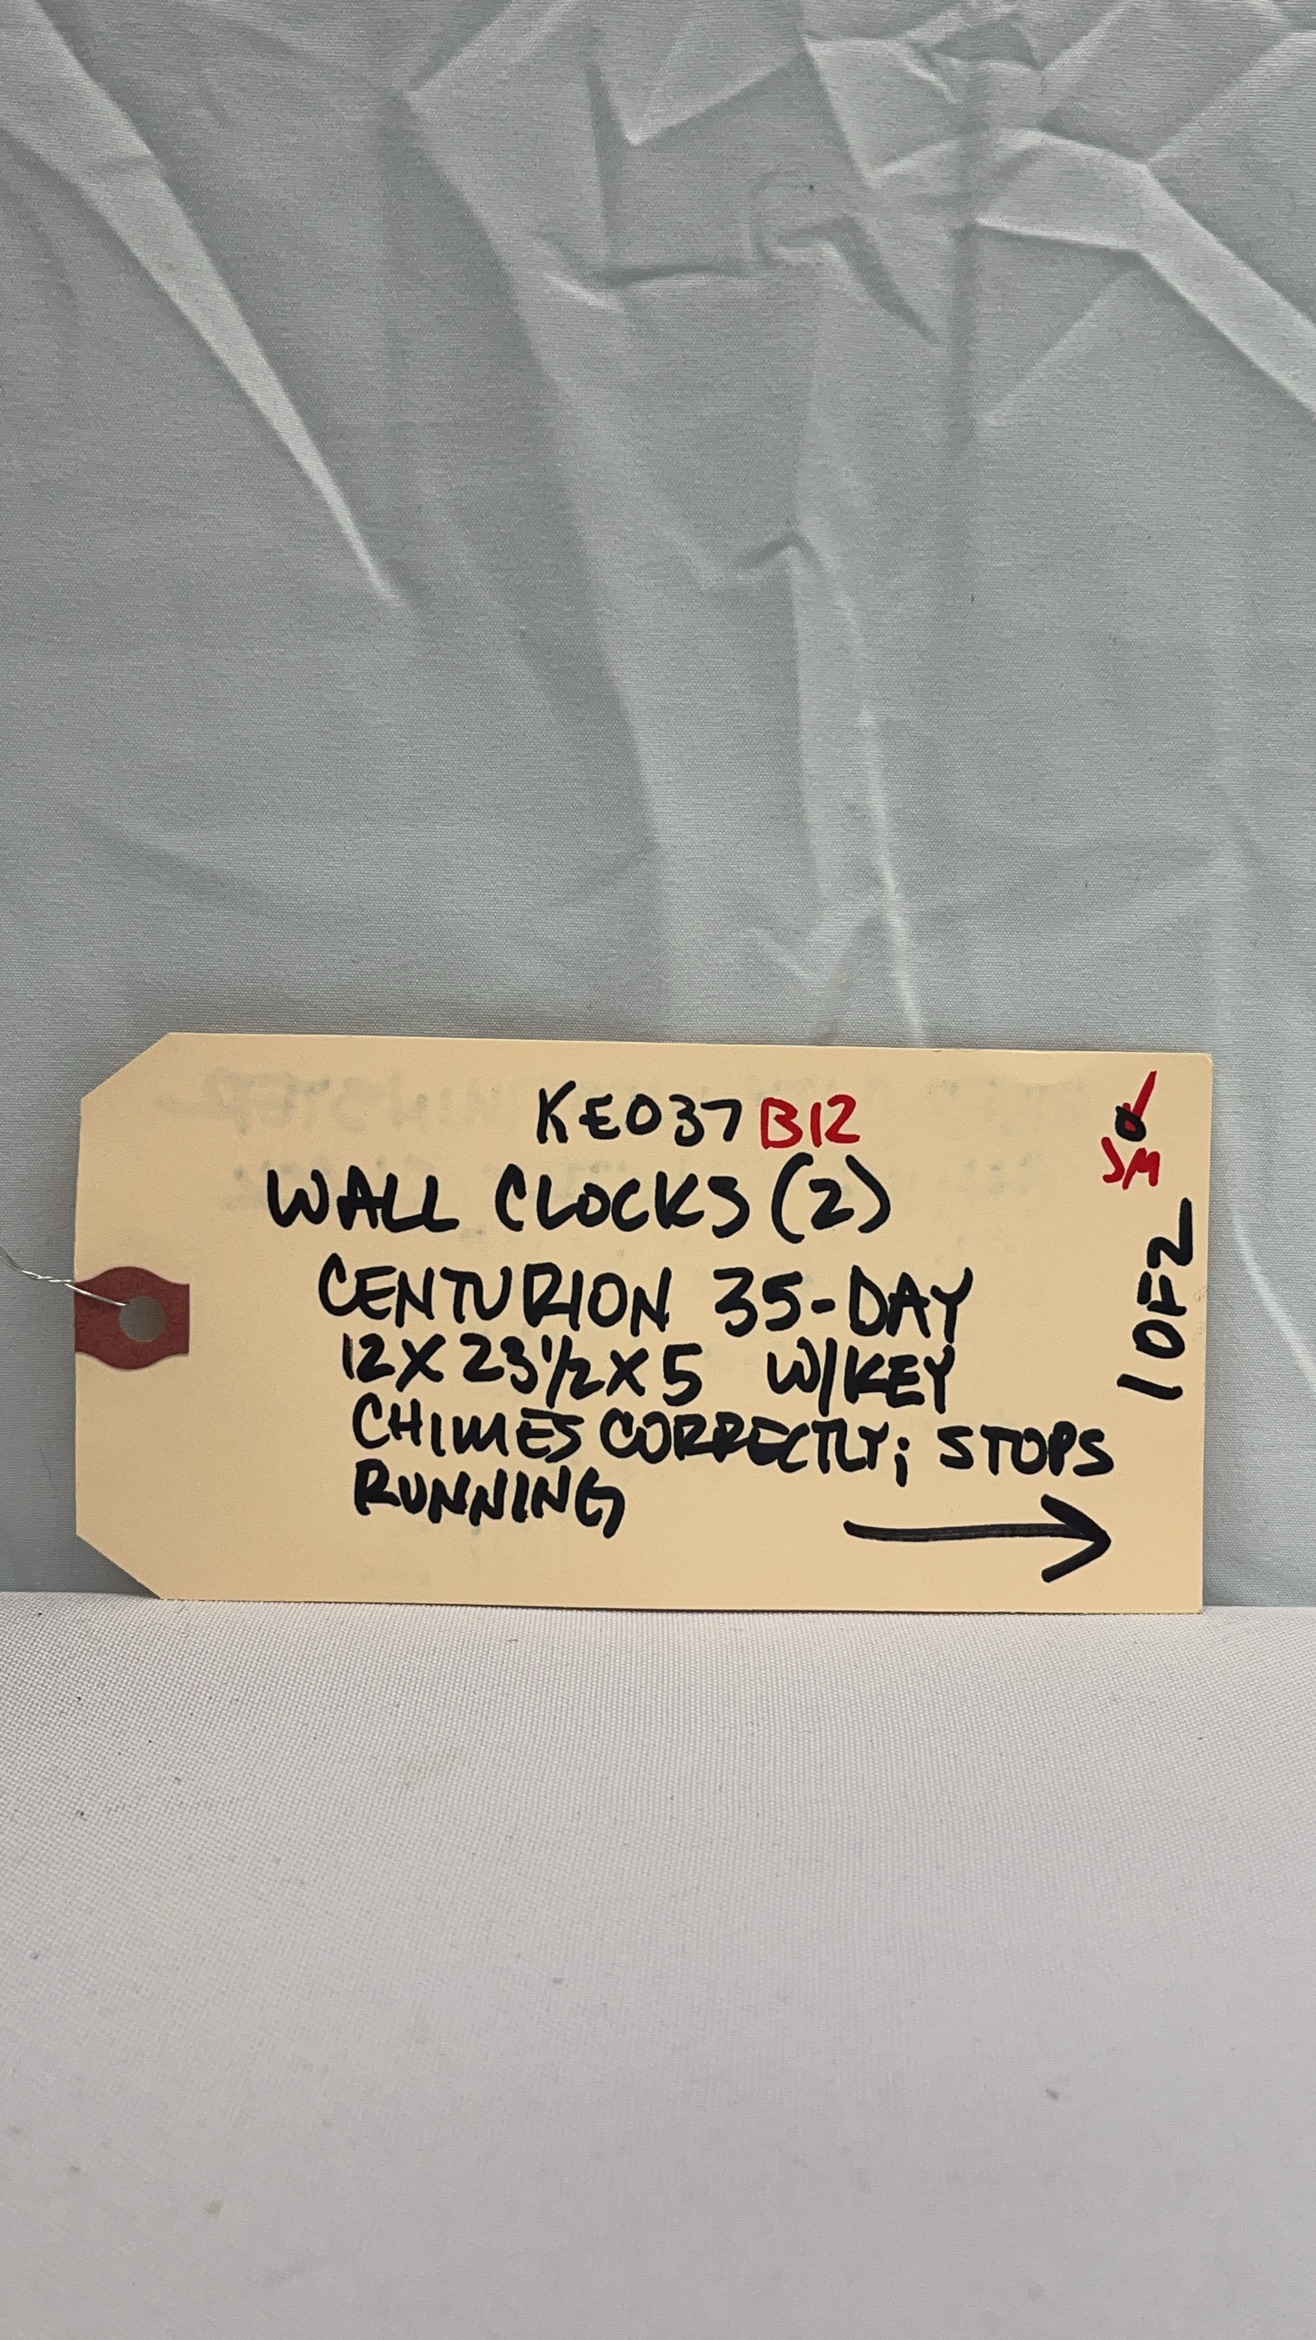 KE037 B12
WALL CLOCKS (2)
CENTURION 35-DAY
12X23½X5 W/KEY
CHIMES CORRECTLY; STOPS
RUNNING
JM
1 OF 2